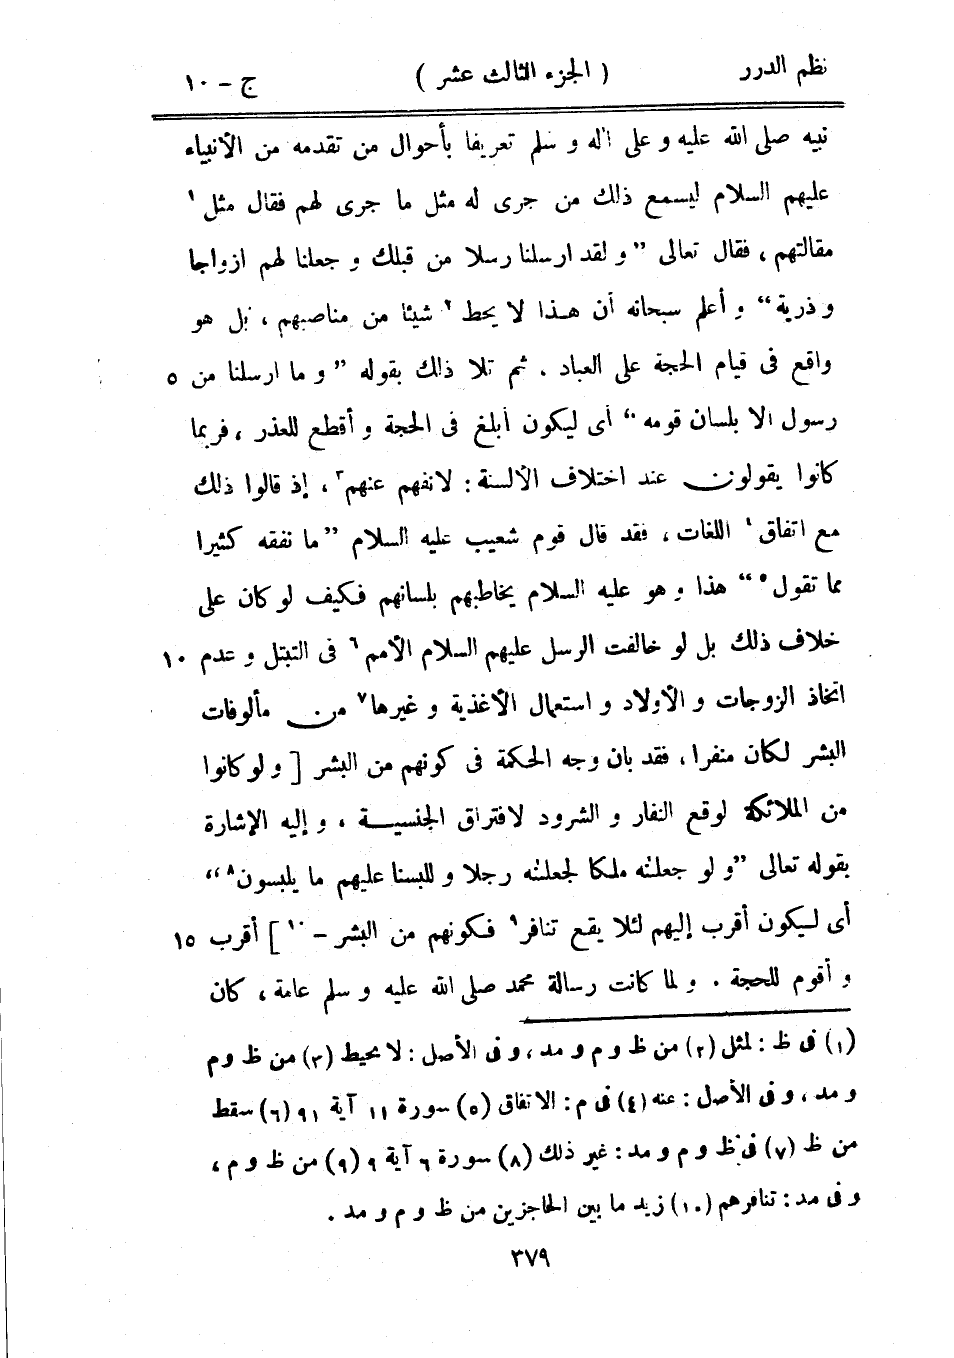 نظم الدرر ( الجزء الثالث عشر ) ج – ١٠
نبيه صلى الله عليه و على آله و سلم تعريفا بأحوال من تقدمه من الأنبياء
عليهم السلام ليسمع ذلك من جرى له مثل ما جرى لهم فقال مثل ١
مقالتهم ، فقال تعالى ” و لقد ارسلنا رسلا من قبلك و جعلنا لهم ازواجا
و ذرية “ و أعلم سبحانه أن هـذا لا يحط ٢ شيئا من مناصبهم ، بل هو
واقع فى قيام الحجة على العباد . ثم تلا ذلك بقوله ” و ما ارسلنا من ٥
رسول الا بلسان قومه “ أى ليكون أبلغ فى الحجة و أقطع للعذر ، فربما
كانوا يقولون عند اختلاف الألسنة : لانفهم عنهم ٣ ، إذ قالوا ذلك
مع اتفاق ٤ اللغات ، فقد قال قوم شعيب عليه السلام ” ما نفقه كثيرا
مما تقول ٥ “ هذا و هو عليه السلام يخاطبهم بلسانهم فكيف لو كان على
خلاف ذلك بل لو خالفت الرسل عليهم السلام الأمم ٦ فى التبتل و عدم ١٠
اتخاذ الزوجات و الأولاد و استعمال الأغذية و غيرها ٧ من مألوفات
البشر لكان منفرا ، فقد بان وجه الحكمة فى كونهم من البشر [ و لو كانوا
من الملائكة لوقع النفار و الشرود لافتراق الجنسيـة ، و إليه الإشارة
بقوله تعالى ” و لو جعلنٰه ملكا لجعلنٰه رجلا و للبسنا عليهم ما يلبسون ٨ “
أى ليكون أقرب إليهم لئلا يقع تنافر ٩ فكونهم من البشر – ١٠ ] أقرب ١٥
و أقوم للحجة . و لما كانت رسالة محمد صلى الله عليه و سلم عامة ، كان
(١) فى ظ : لمثل (٢) من ظ و م و مد ، و فى الأصل : لا يحيط (٣) من ظ و م
و مد ، و فى الأصل : عنه (٤) فى م : الاتفاق (٥) سورة ١١ آية ٩١ (٦) سقط
من ظ (٧) فى ظ و م و مد : غير ذلك (٨) سورة ٦ آية ٩ (٩) من ظ و م ،
و فى مد : تنافرهم (١٠) زيد ما بين الحاجزين من ظ و م و مد .
٣٧٩